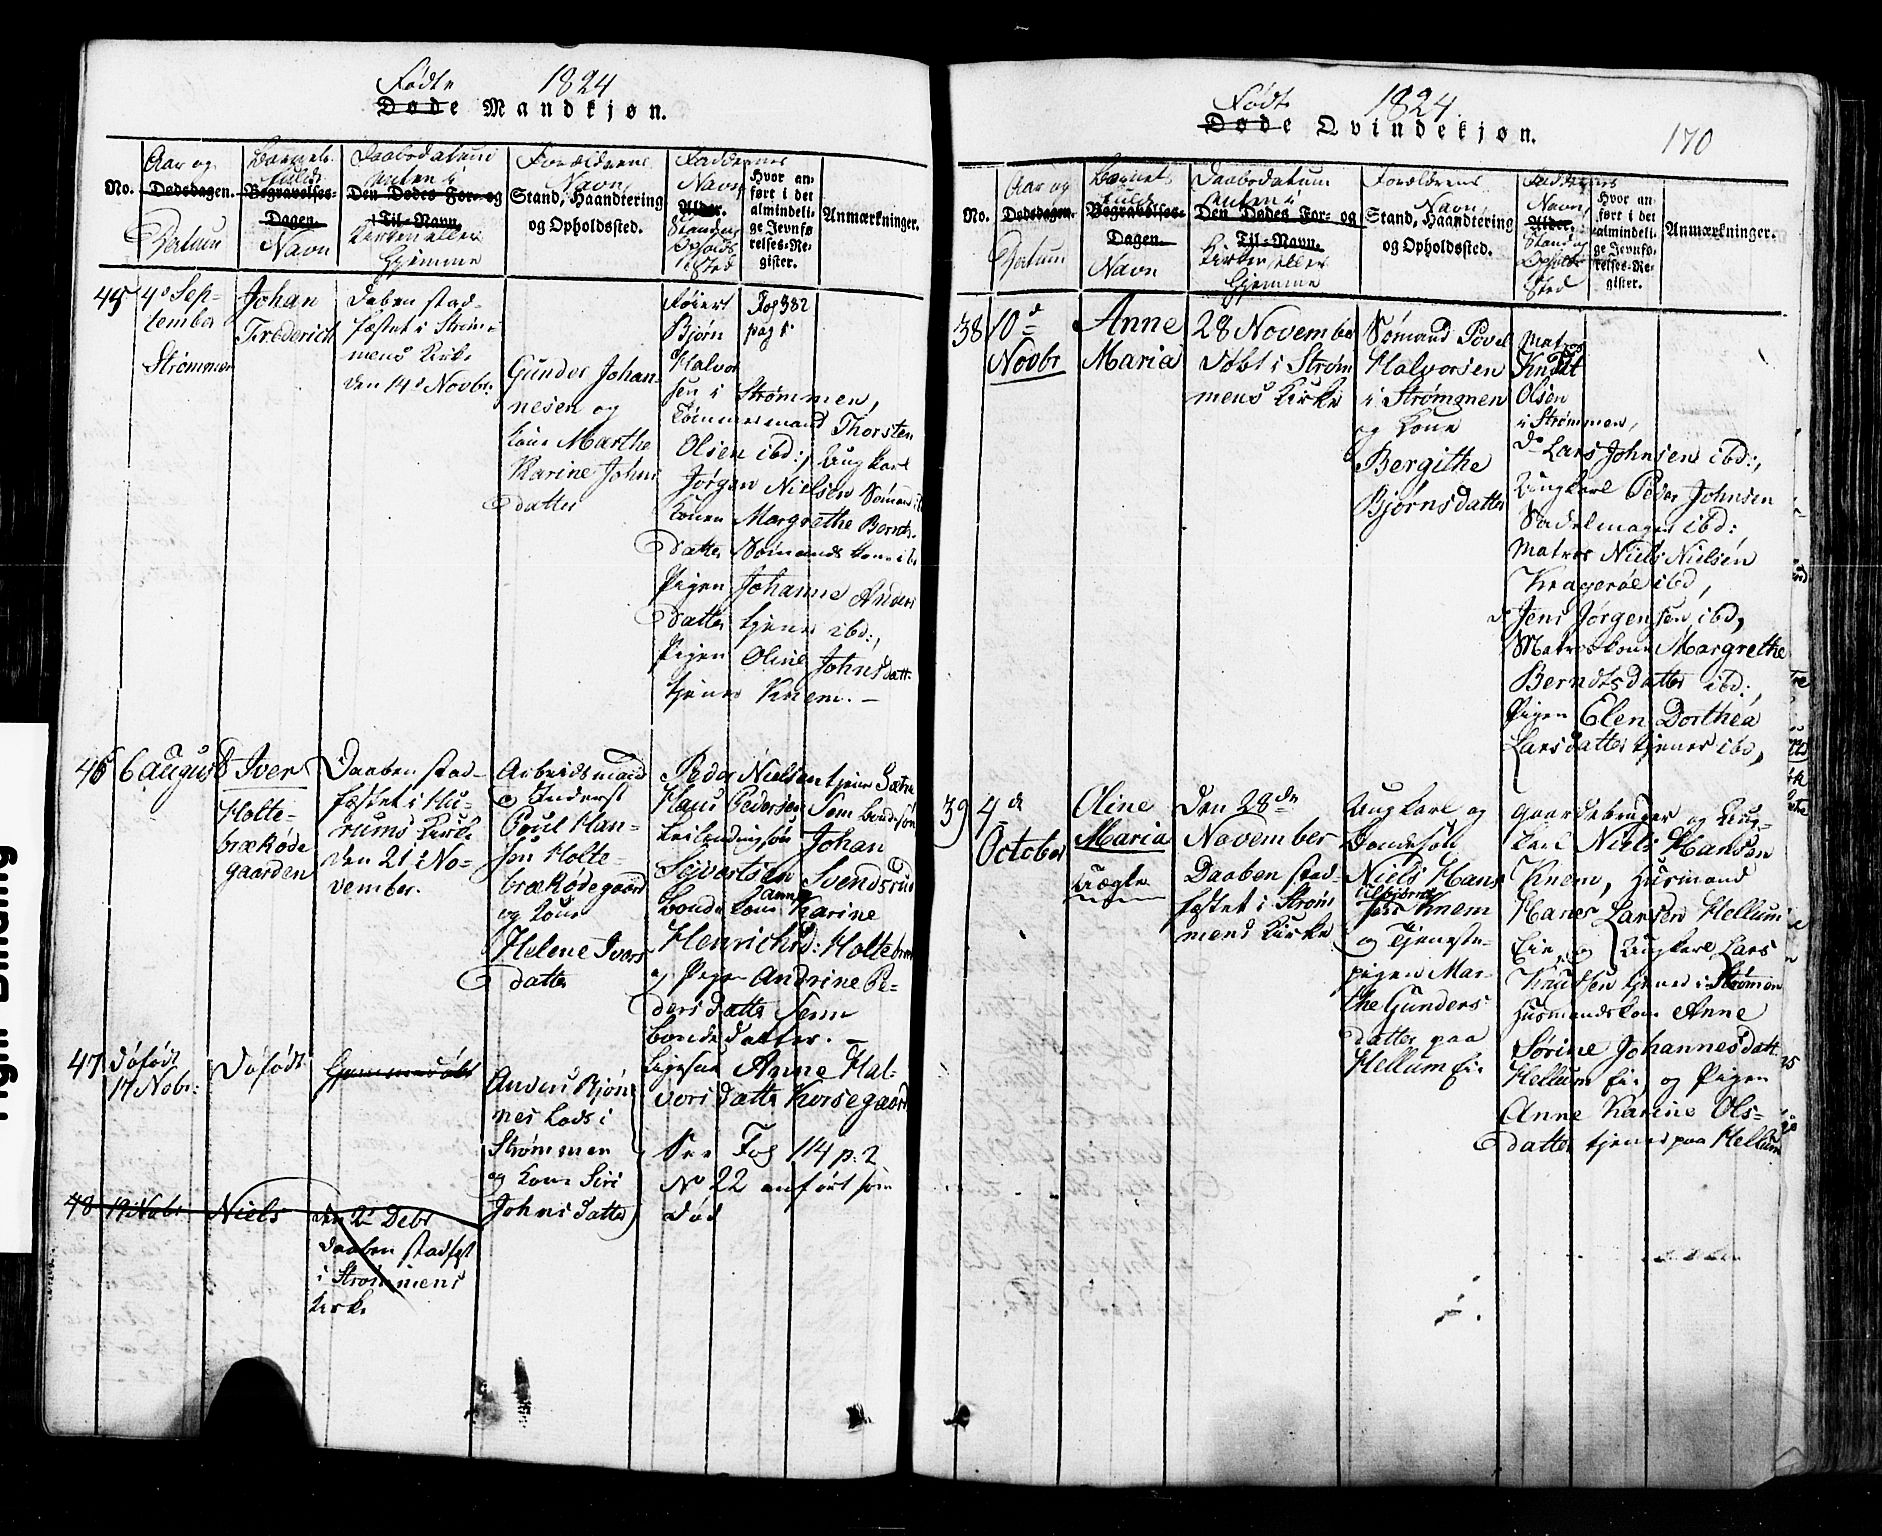 Fødte 1824
Døde Mandkjøn.
No.
Aar og
Dødsdagen.
Datum
Barnets
fulde
Begravelses-
Dagen.
Navn
Daabsdatum
enten i
Den Dødes For- og
Til-Navn.
Kirken eller
Hjemme
Forældrenes
Navn,
Stand, Haandtering
og Opholdssted.
Faddernes
Navn,
Alder.
Stand og
Opholds
Sted
Hvor an-
ført i det
almindeli-
ge Jevnfø-
relses-Re-
gister.
Anmærkninger.
45
4d Sep-
tember
Strømmen
Johan
Frederich
Daben stad-
fæstet i Strøm-
mens Kirke
den 14d Novbr.
Gunder Johan-
nesen og
Kone Marthe
Karine Johns
datter
Røiert
Bjørn
Halvor
sen i Strømmen,
Tømmermand Thorsten
Olsen ibd:, Ungkarl
Jørgen Nielsen Sømand
Konen Margrethe Bernts
datter Sømands kone ib:
Pigen Johanne Anders
datter tjener ibd:,
Pigen Oline Johnsdatt
tjener Knem. —
Jog 382
pag 1.
46
6 August
Iver
Holte-
brækøde
gaarden
Daaben stad-
fæstet i Hu-
rums Kirke
den 21 No-
vember.
Arbeidsmand
Inderst
Poul Han-
sen Holte-
brækødegaard
og Kone
Helene Ivers
datter
Peder Nielsen tjener Sætre
Hans Pedersen Sem bondesøn
Johan
Sivertsen Svendsrud
Bonde Kone Karine
Henrichsd: Holtebræk
og Pigen Andrine Pe-
dersdatter Sem
bondedatter. —
Pigen Anne Hal-
vorsdatter Korsegaard
47
Døfødt
17 Nobr:
Døfødt
Hjemmedøbt
Anders Bjøn
nes Lods i
Strømmen
og Kone Siri
Johnsdatter
See Jog 114 p. 2
No 22 anført som
død
48
19 Nobr
Niels
den 2d Debr
daaben stadfæst
i Strømmens
Kirke
Født 1824.
Døde Qvindekjøn.
170
No.
Aar og
Dødsdagen.
Datum
Barnets
fulde
Begravelses-
Dagen.
Navn
Daabsdatum
enten i
Den Dødes For- og
Til-Navn.
Kirken eller
Hjemme
Forældrenes
Navn,
Stand, Haandtering
og Opholdssted.
Faddernes
Navn,
Alder.
Stand og
Opholds
Sted
Hvor an-
ført i det
almindeli-
ge Jevnfø-
relses-Re-
gister.
Anmærkninger.
38
10d
Novbr
Anne
Maria
28 November
Døbt i Strøm
mens Kirke
Sømand Povel
Halvorsen
i Strømmen
og Kone
Bergithe
Bjørnsdatter
Matros
Knudt
Olsen
i Strømmen,
do Lars Johnsen ibd:,
Ungkarl Peder Johnsen
Sadelmager ibd:
Matros Niels Nielsen
Kragerøe ibd,
do Jens Jørgensen ibd,
Matroskone Margrethe
Berndtsdatter ibd:,
Pigen Elen Dorthea
Larsdatter tjener ibd,
39
4de
October
Oline
Maria
Uægte
Den 28de
November
Daaben stad-
fæstet i Strøm
mens Kirke
Ungkarl og
Bondesøn
Niels Hans
sen Knem
og Tjeneste-
pigen Mar-
the Gunders
datter paa
Hellum Eie
Gaardebruger og Ung-
karl Niels Hansen
Knem, Husmand
Hans Larsen Hellum
Eie, og Ungkarl Lars
Knudsen tjener i Strømmen
Husmandskone Anne
Sørine Johannesdatt
Hellum Eie, og Pigen
Anne Karine Ols-
datter tjener paa Hellum